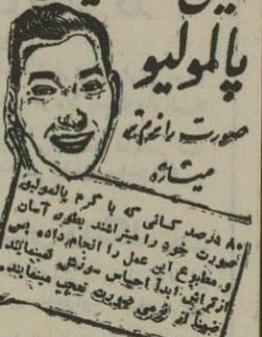 پالمولیو
صورت را نرم تر
میسازد
۸۰ درصد کسانی که با کرم پالمولیو
صورت خود را میتراشند بطوری آسان
و مطبوع این عمل را انجام داده پس
از تراش ابدا احساس سوزش نمینمایند
ضمنا از نرمی صورت تعجب مینمایند.